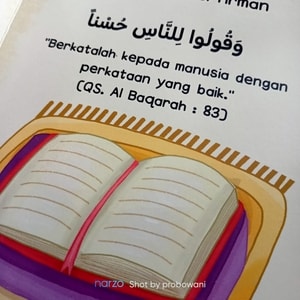 Firman
وَقُولُوا لِلنَّاسِ حُسْناً
"Berkatalah kepada manusia dengan
perkataan yang baik."
(QS. Al Baqarah : 83)
narzo Shot by probowani